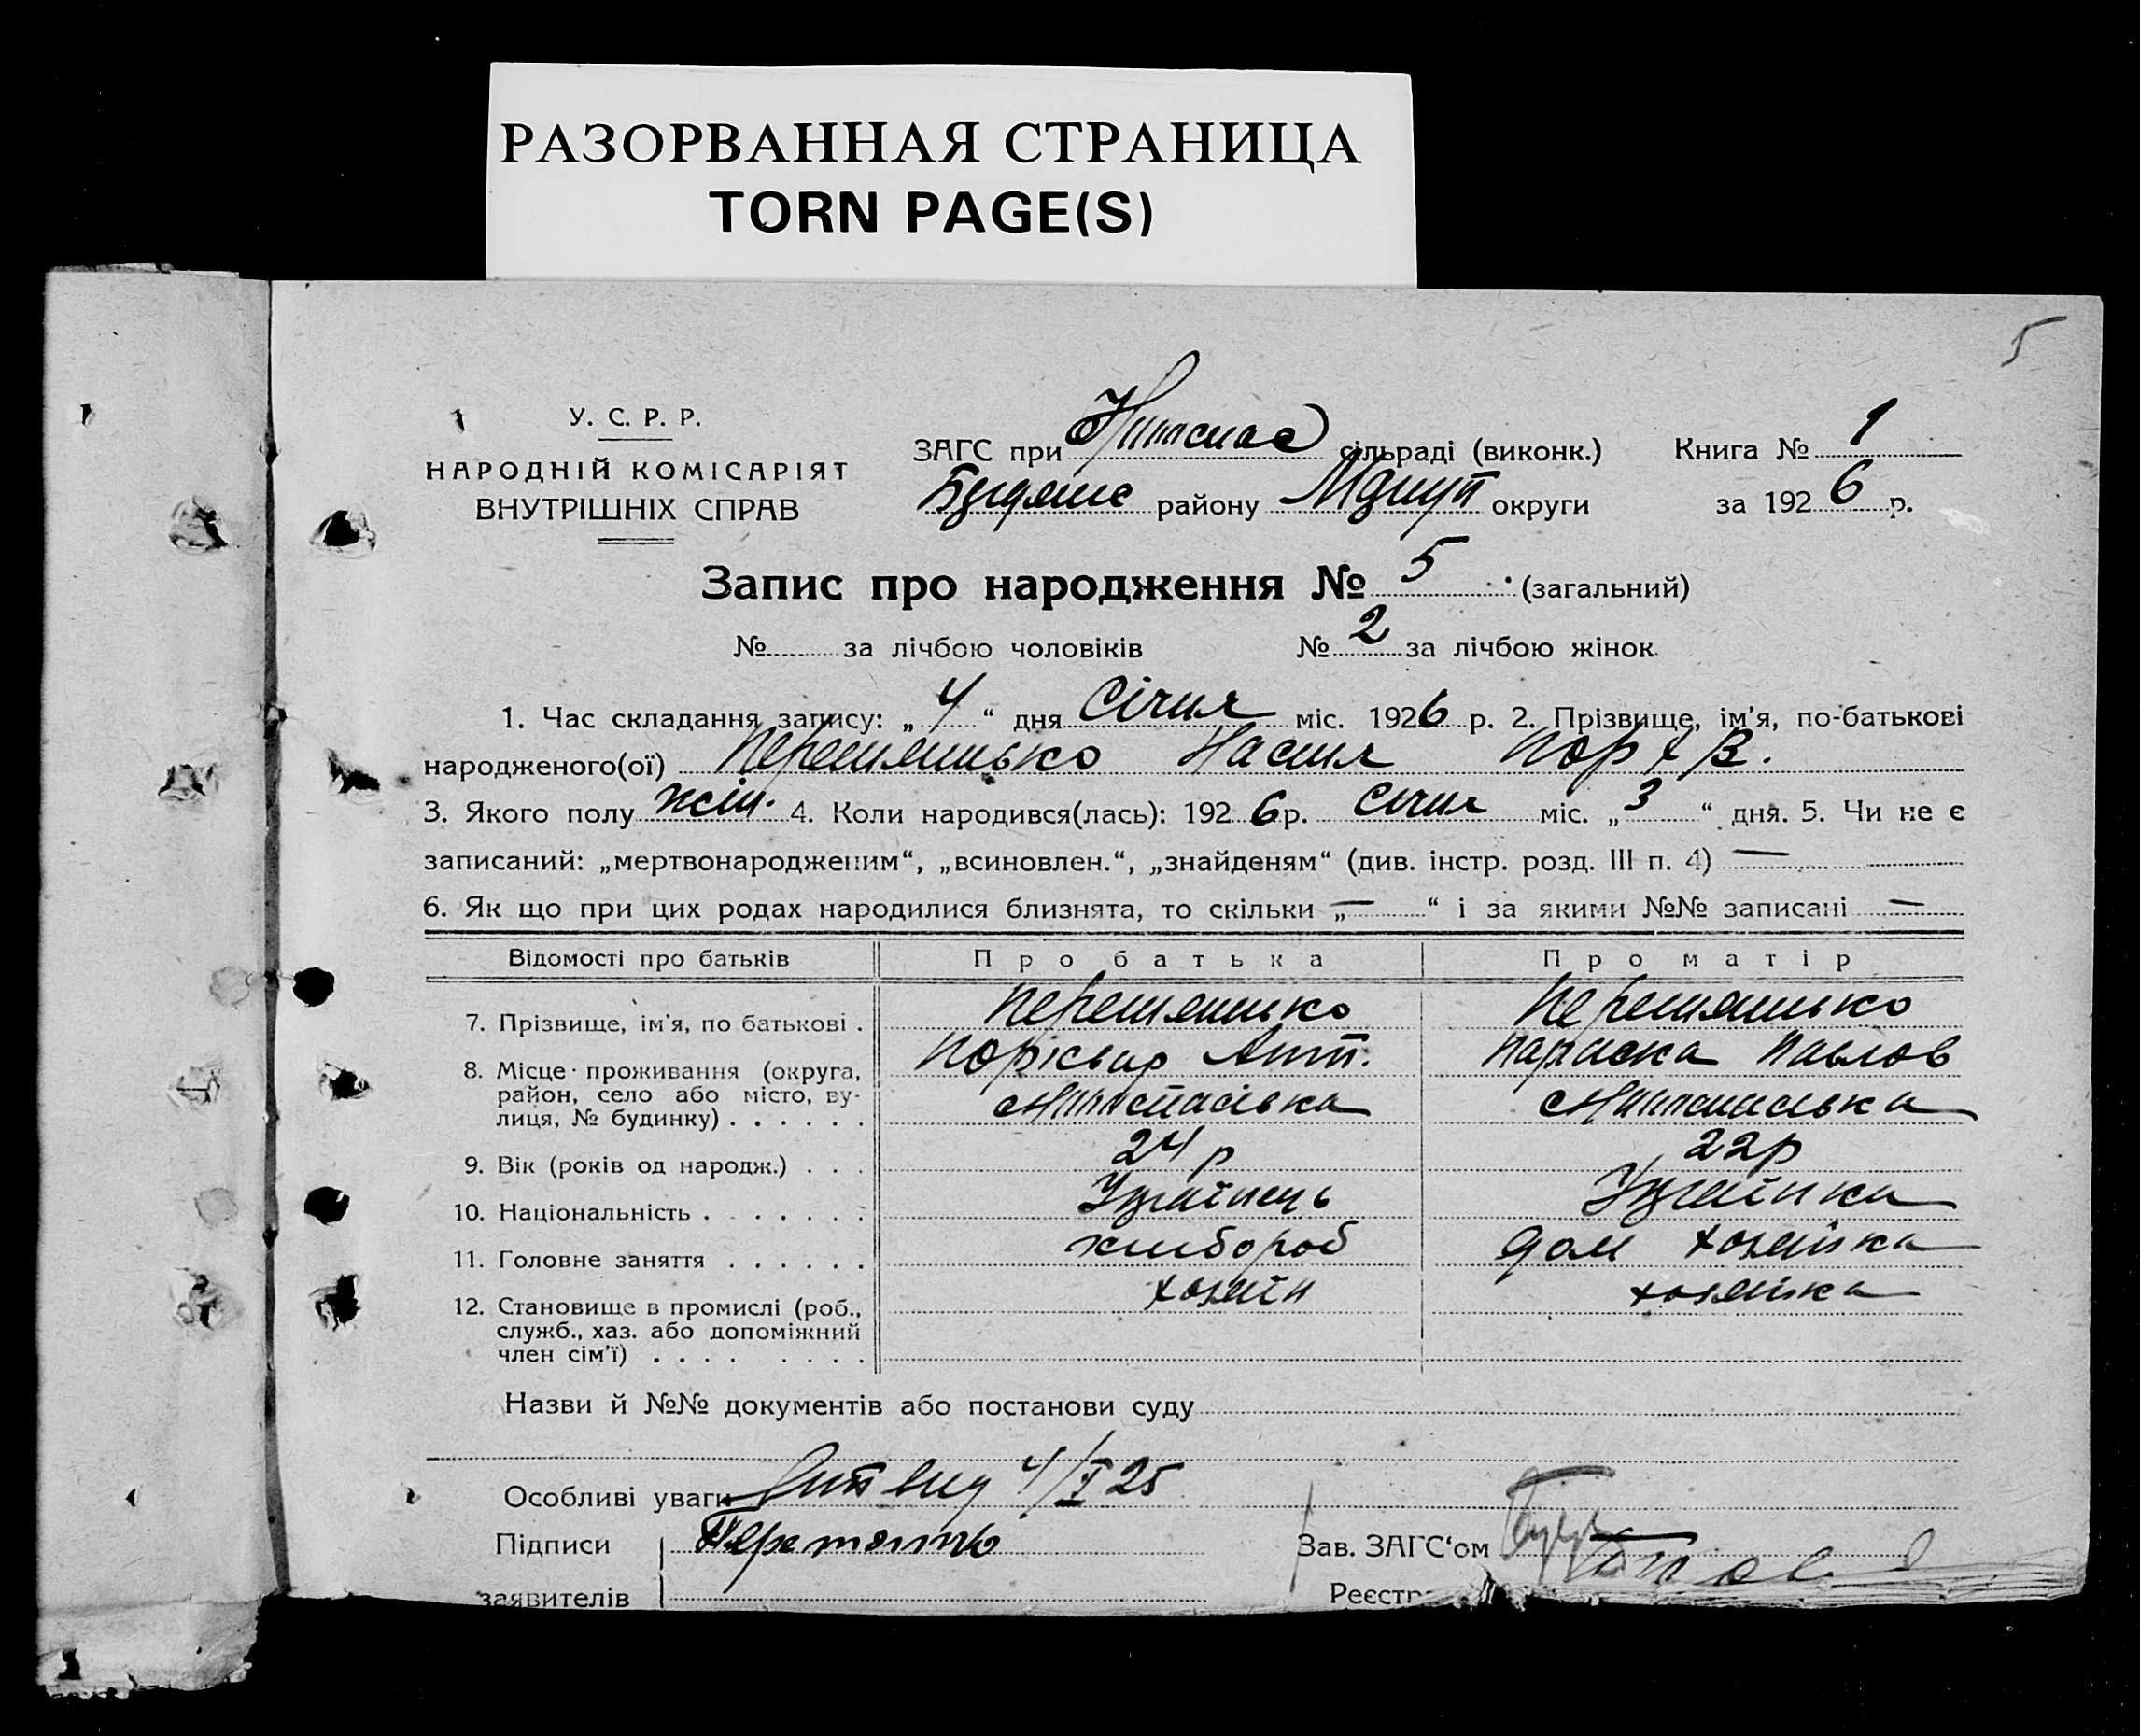 РАЗОРВАННАЯ СТРАНИЦА
TORN PAGE(S)
5
У. С. Р. Р.
НАРОДНІЙ КОМІСАРІЯТ
ВНУТРІШНІХ СПРАВ
ЗАГС при сільраді (виконк.) Книга № 1
району округи за 1926 р.
Запис про народження № 5 (загальний)
№ за лічбою чоловіків № 2 за лічбою жінок
1. Час складання запису: „4“ дня Січня міс. 1926 р. 2. Прізвище, ім'я, по-батькові
народженого(ої) Перетятько Настя
3. Якого полу жін. 4. Коли народився(лась): 1926 р. Січня міс. „3“ дня. 5. Чи не є
записаний: „мертвонародженим“, „всиновлен.“, „знайденям“ (див. інстр. розд. III п. 4) —
6. Як що при цих родах народилися близнята, то скільки „—“ і за якими №№ записані —
Відомості про батьків Про батька Про матір
7. Прізвище, ім'я, по батькові . Перетятько Перетятько
Параска Павлов
8. Місце проживання (округа,
район, село або місто, ву-
лиця, № будинку) . . . . . .
9. Вік (років од народж.) . . . 24 р 22 р
10. Національність . . . . . . . Українець Українка
11. Головне заняття . . . . . . хлібороб дом хозяйка
12. Становище в промислі (роб., хозяїн хозяйка
служб., хаз. або допоміжний
член сім'ї) . . . . . . . .
Назви й №№ документів або постанови суду
Особливі уваги 4/I 25
Підписи Перетятько Зав. ЗАГС'ом
заявителів Реєстр